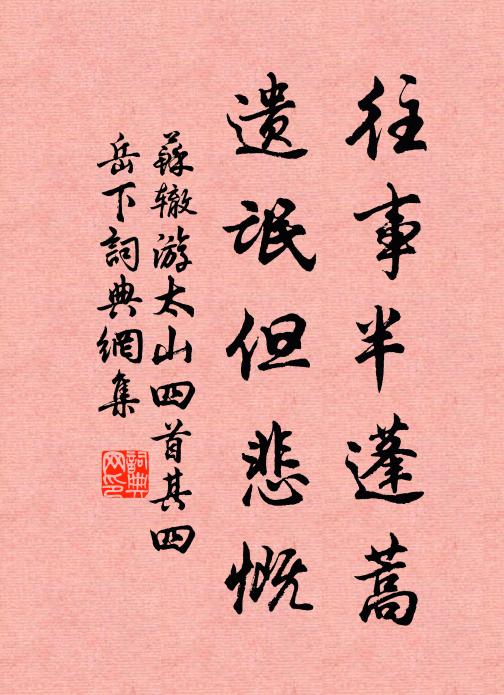 往事半蓬蒿
遗氓但悲慨
蘇辙游太山四首其四
岳下詞典網集
詞典网印